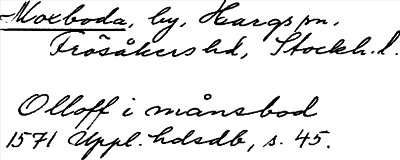 Morboda, by, Hargs sn,
Frösåkers hd, Stockh. l.
Olloff i månsbod
1571 Uppl. hdsdb, s. 45.